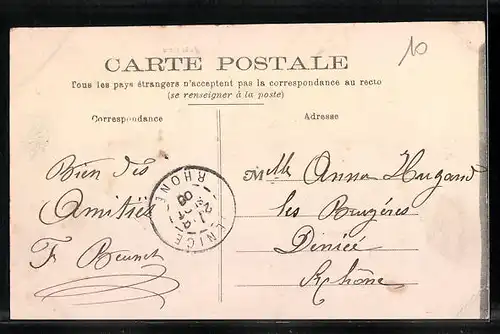 10
CARTE POSTALE
Tous les pays étrangers n'acceptent pas la correspondance au recto
(se renseigner à la poste)
Correspondance
Adresse
Bien des
Amitiés
F. Brunet
RHONE
Melle Anna Hugand
les Bruyéres
Dénicé
Rhône